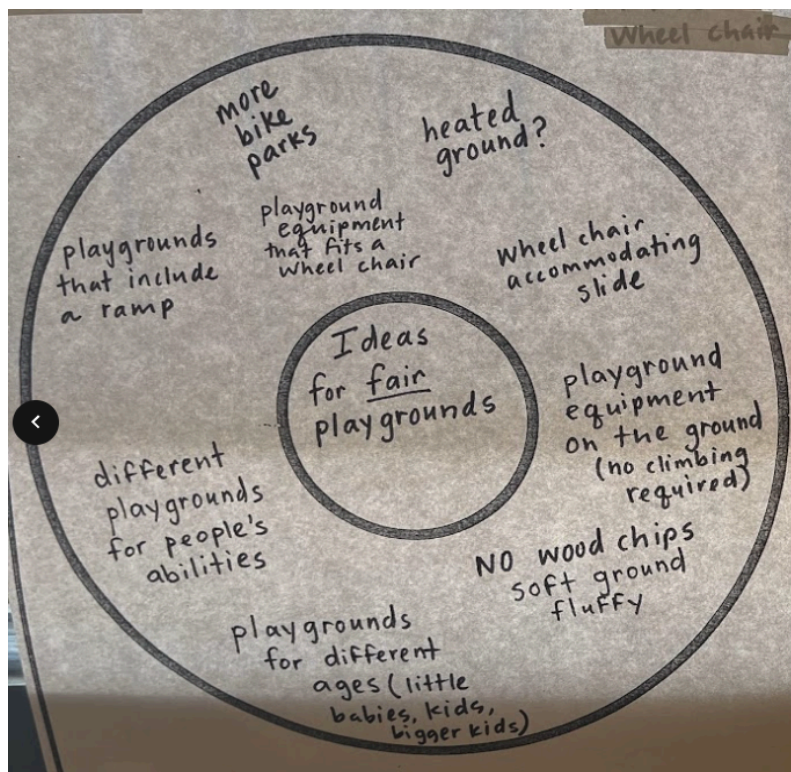 Wheel chair
more
bike
parks
heated
ground?
playground
equipment
that fits a
wheel chair
playgrounds
that include
a ramp
wheel chair
accommodating
slide
Ideas
for fair
playgrounds
playground
equipment
on the ground
(no climbing
required)
different
playgrounds
for people's
abilities
NO wood chips
soft ground
fluffy
playgrounds
for different
ages (little
babies, kids,
bigger kids)